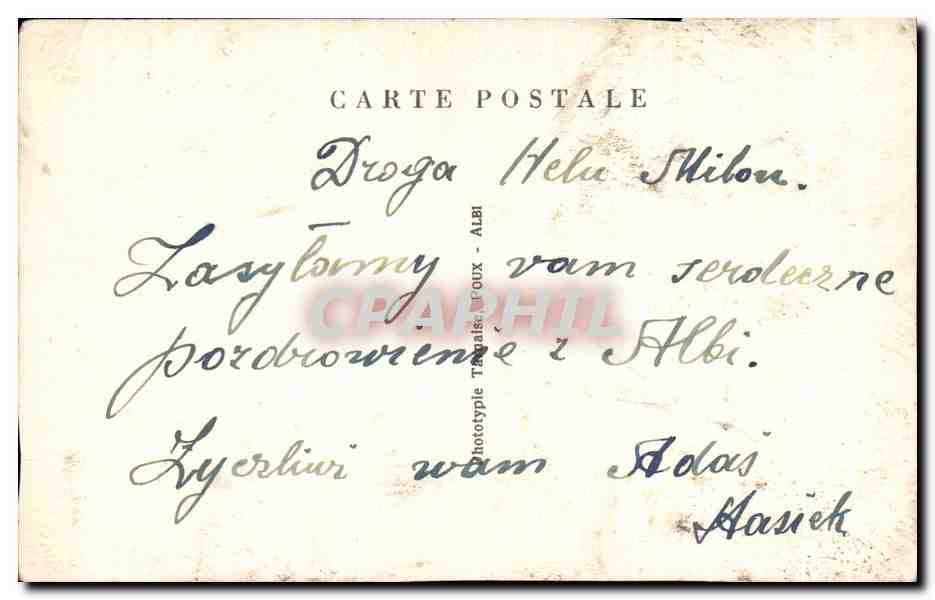 CARTE POSTALE
Droga Helu Milou.
Zasyłamy vam serdeczne
pozdrowienie z Albi.
Zyczliwi wam Adaś
Stasiek
Phototypie Tarnaise, POUX - ALBI
CPAPHIL